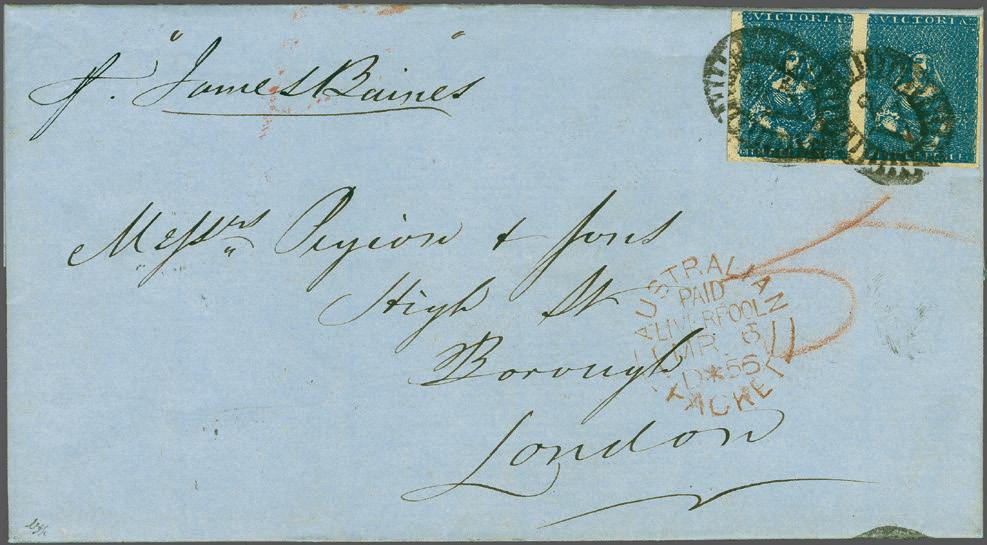 VICTORIA VICTORIA
p. "James Baines"
Messrs Pigeon & Sons
High St
Borough
London
AUSTRALIAN
PAID
LIVERPOOL
MR 6
D*56
PACKET